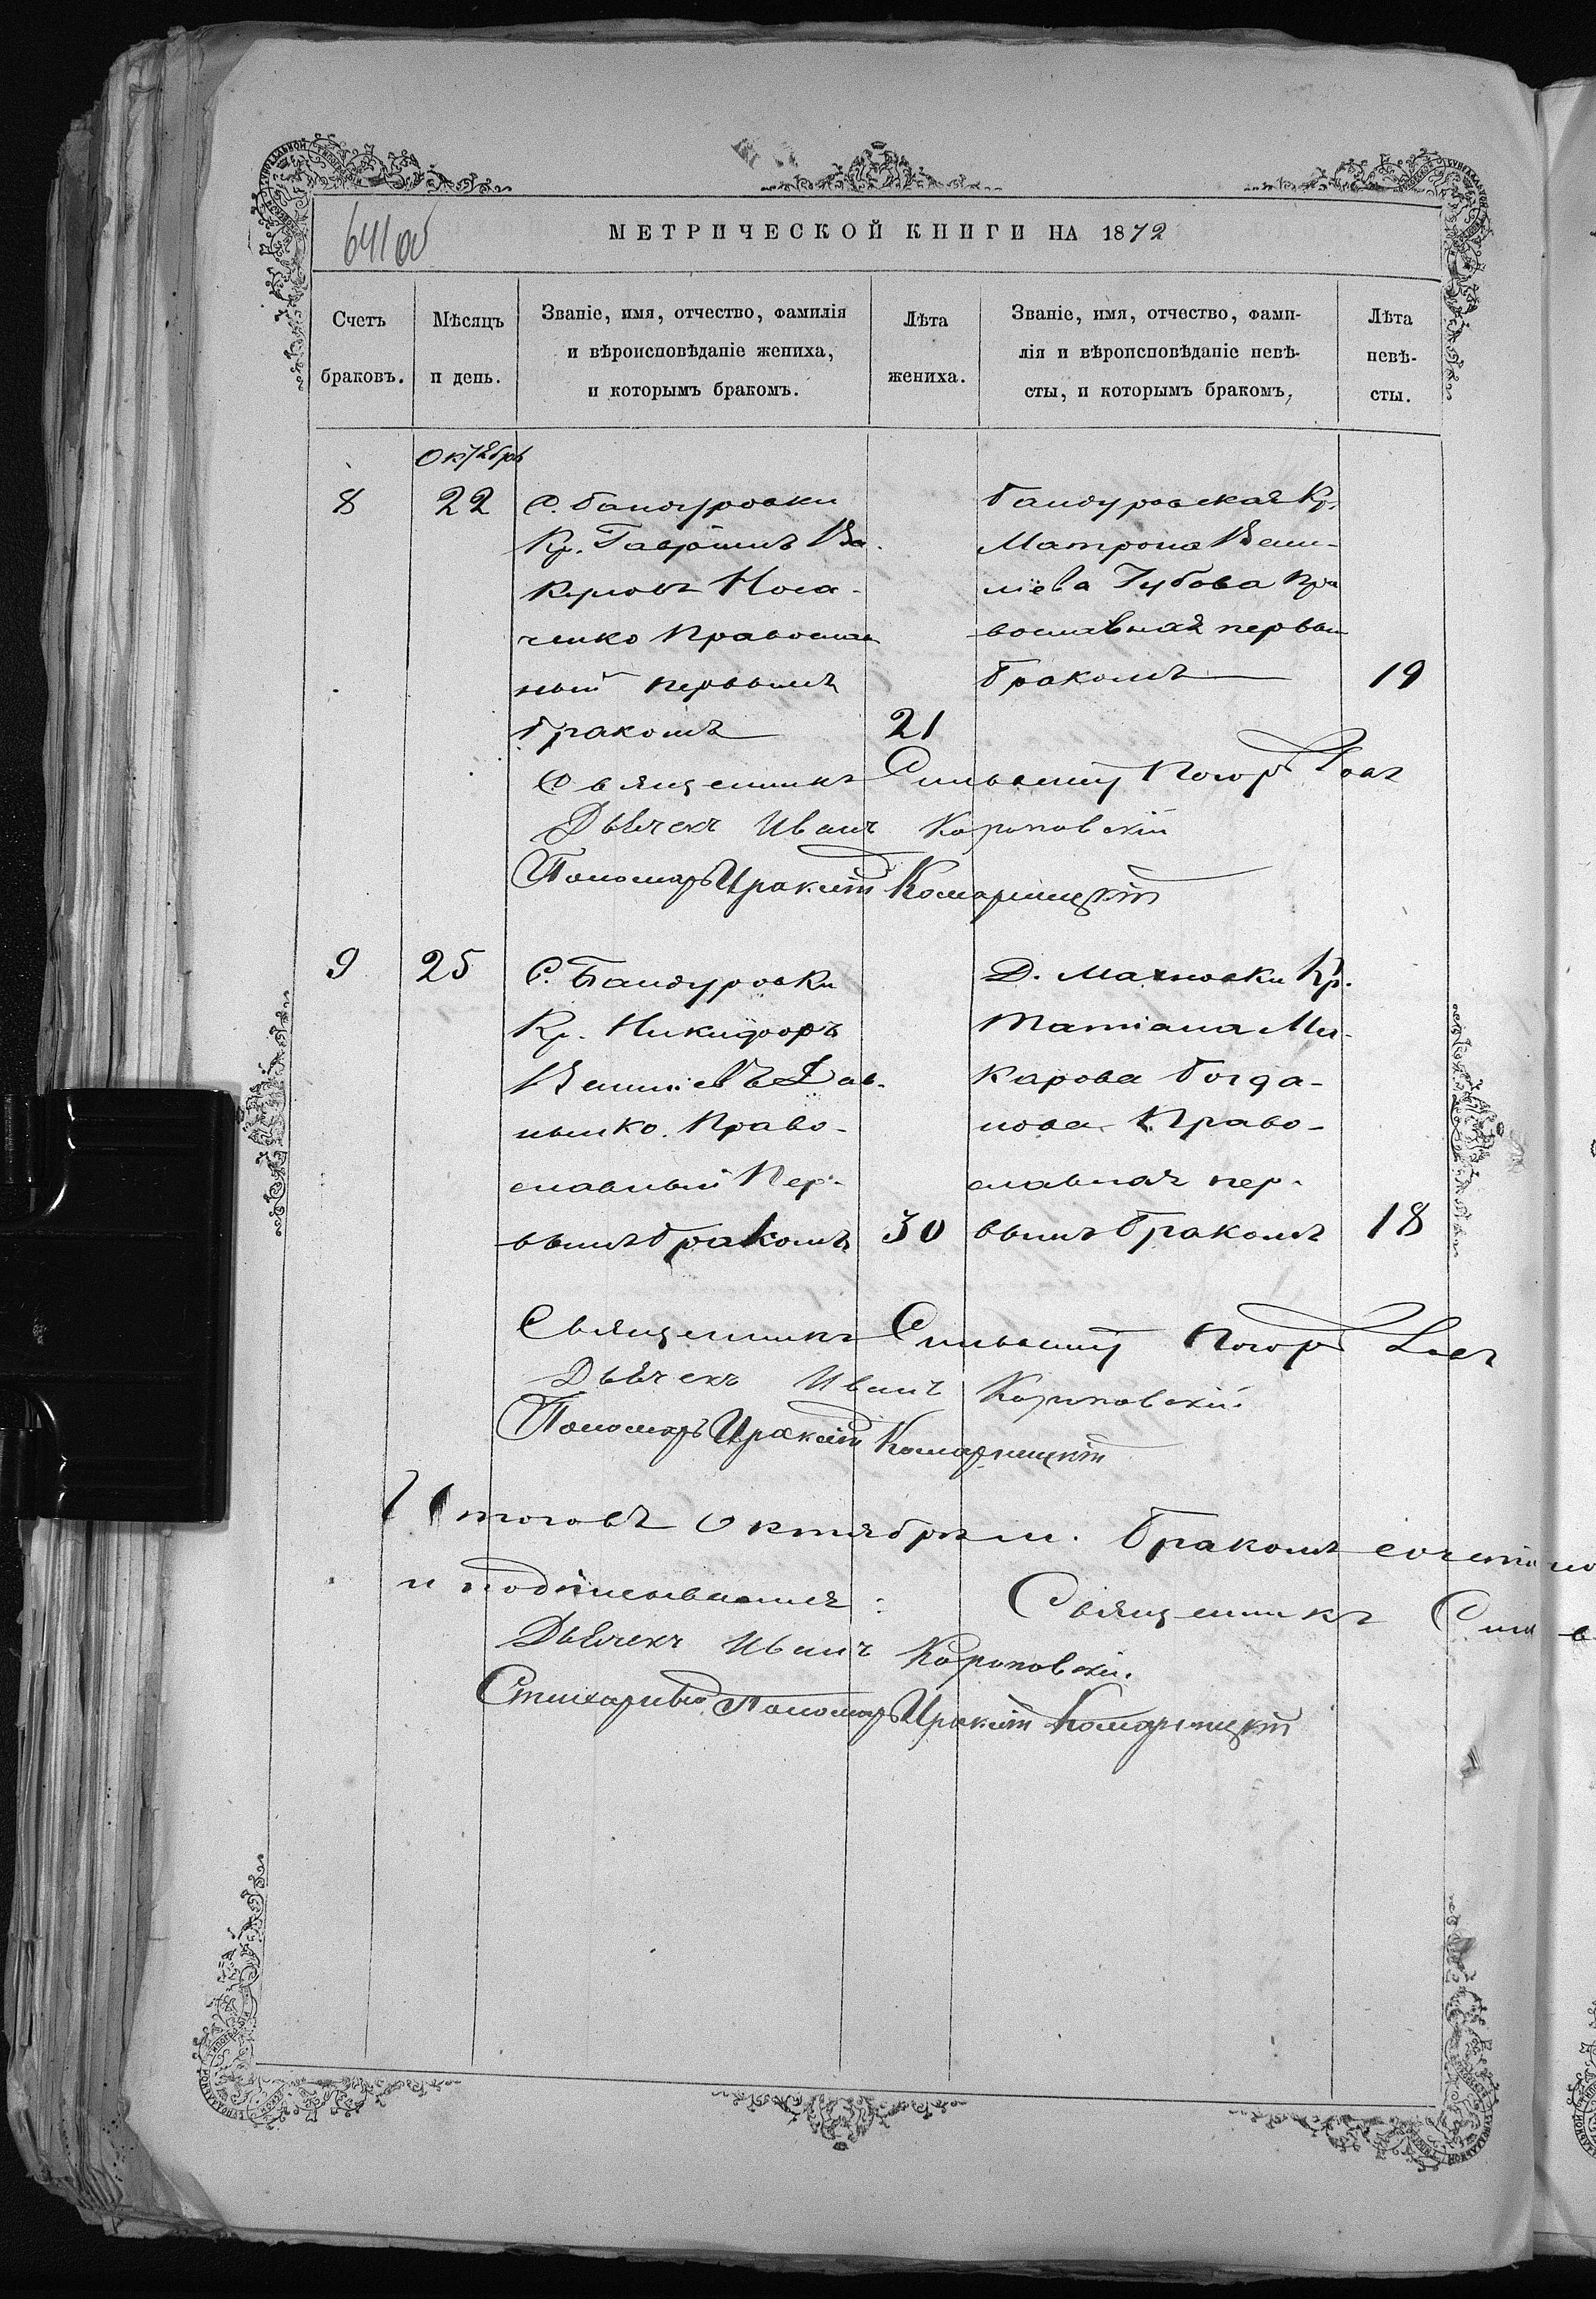 641 об
МЕТРИЧЕСКОЙ КНИГИ НА 1872
Счетъ браковъ.
Мѣсяцъ и день.
Званіе, имя, отчество, фамилія
и вѣроисповѣданіе жениха,
и которымъ бракомъ.
Лѣта жениха.
Званіе, имя, отчество, фами-
лія и вѣроисповѣданіе невѣ-
сты, и которымъ бракомъ.
Лѣта невѣ-
сты.
Октябрь
8
22
С. Бандуровки
Кр. Гавріилъ Ва-
куловъ Носа-
ченко Православ
ный первымъ
бракомъ
21
Бандуровская Кр.
Матрона Васи-
ліева Губова Пра
вославная первы
бракомъ
19
Священникъ Сильвестръ
Дьячекъ Иванъ Кориковскій
Пономарь Ираклій Комарницкій
9
25
С. Бандуровки
Кр. Никифоръ
Василіевъ
Право-
славный Пер-
вымъ бракомъ
30
Д. Махновки Кр.
Татіана Ма-
карова Богда-
нова Право-
славная пер-
вымъ бракомъ
18
Священникъ Сильвестръ
Дьячекъ Иванъ Кориковскій.
Пономарь Ираклій Комарницкій
Итого въ Октябрѣ м. бракомъ сочетано
и подписываемся: Священникъ
Дьячекъ Иванъ Кориковскій.
Пономарь Ираклій Комарницкій